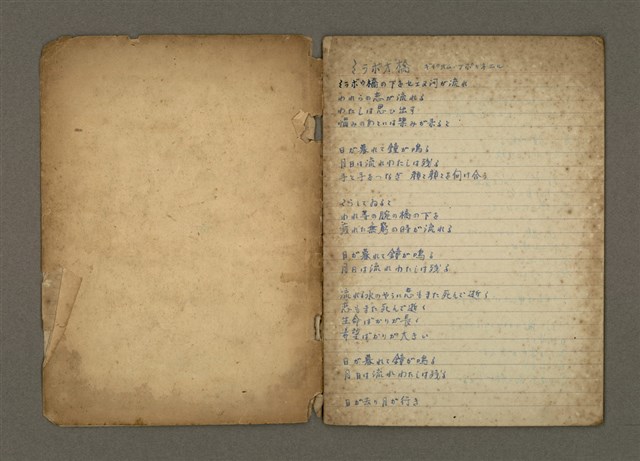 ミラボオ橋 ギイヨム・アポリネエル
ミラボオ橋の下をセエヌ河が流れ
われらの恋が流れる
わたしは思ひ出す
悩みのあとには楽みが来ると
日が暮れて鐘が鳴る
月日は流れわたしは残る
手と手をつなぎ 顔と顔とを向け合
かうしてゐると
われ等の腕の橋の下を
疲れた無窮の時が流れる
日が暮れて鐘が鳴る
月日は流れわたしは残る
流れる水のやうに恋もまた死んで逝く
恋もまた死んで逝く
生命ばかりが長く
希望ばかりが大きい
日が暮れて鐘が鳴る
月日は流れわたしは残る
日が去り月が行き